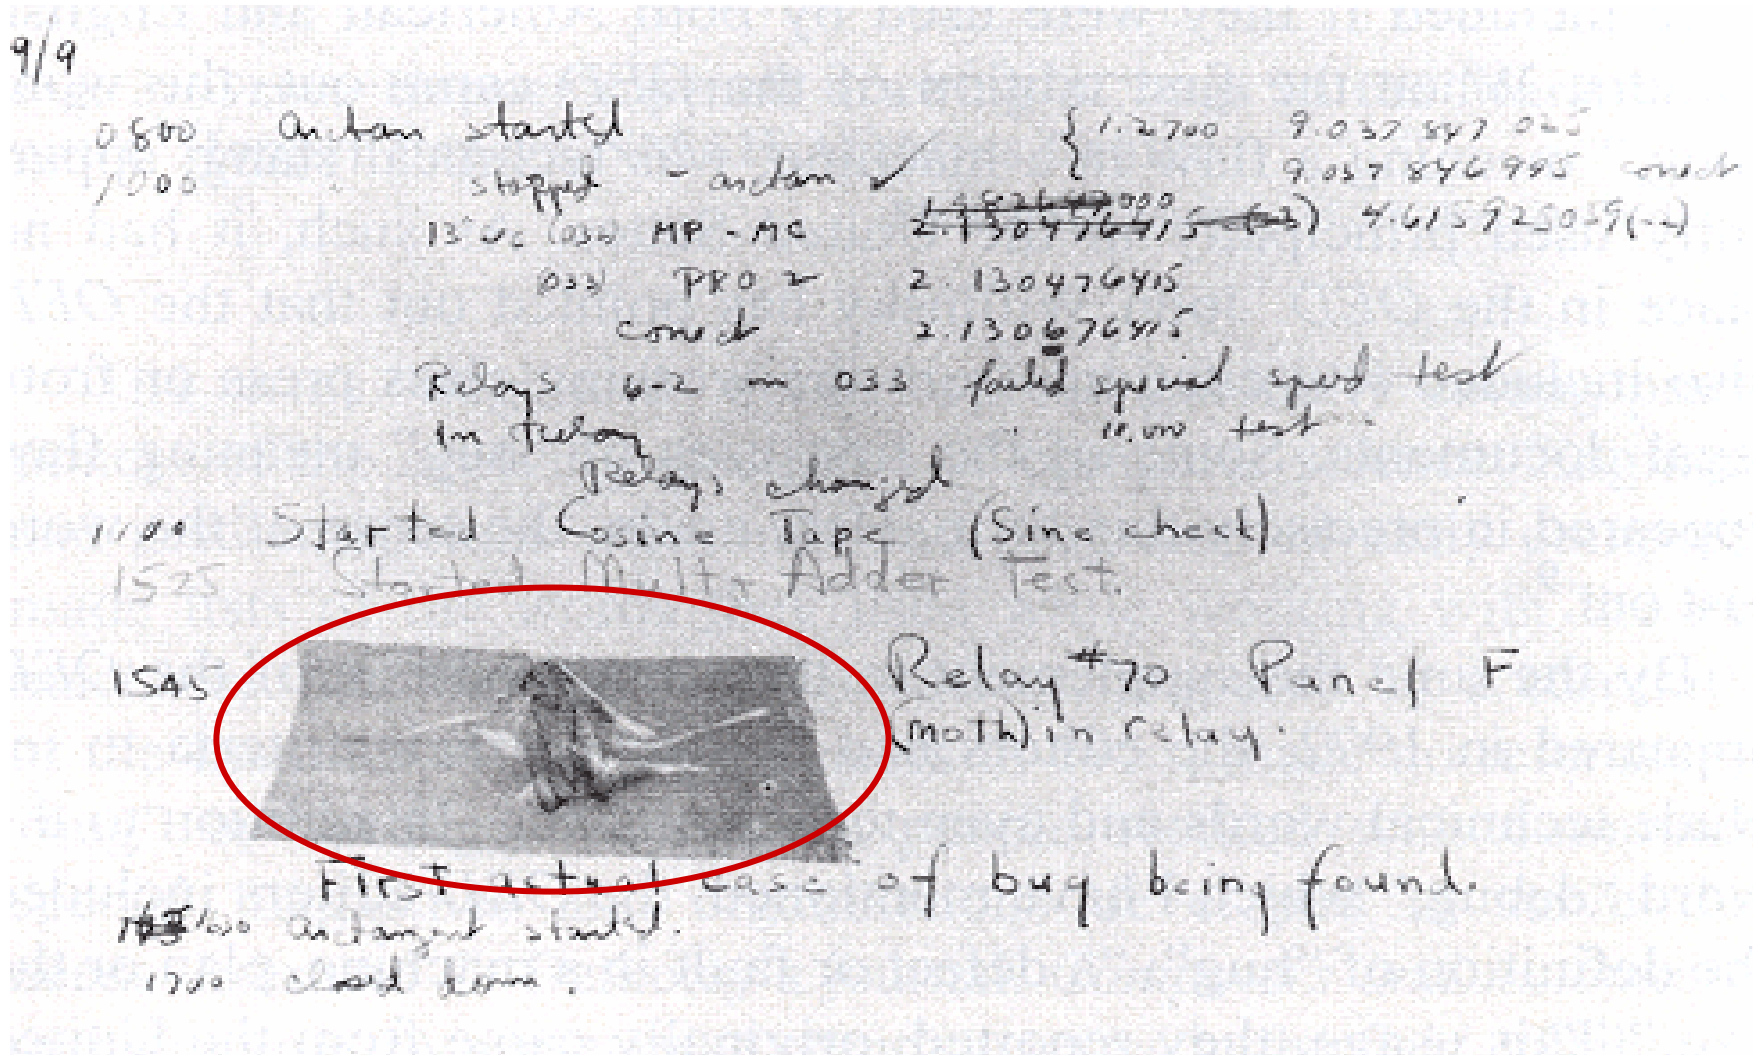 9/9
0800 arctan started { 1.2700 9.037 847 025
1000 stopped - arctan ✓ 9.037 846 995 correct
13" uc (032) MP - MC 2.130476415 4.615925059(-2)
(033) PRO 2 2.130476415
correct 2.130676415
Relays 6-2 in 033 failed special speed test
In Relay 10,000 test
Relays changed
1100 Started Cosine Tape (Sine check)
1525 Started Mult + Adder Test.
1545 Relay #70 Panel F
(moth) in relay.
First actual case of bug being found.
1630 arctangent started.
1700 closed down.